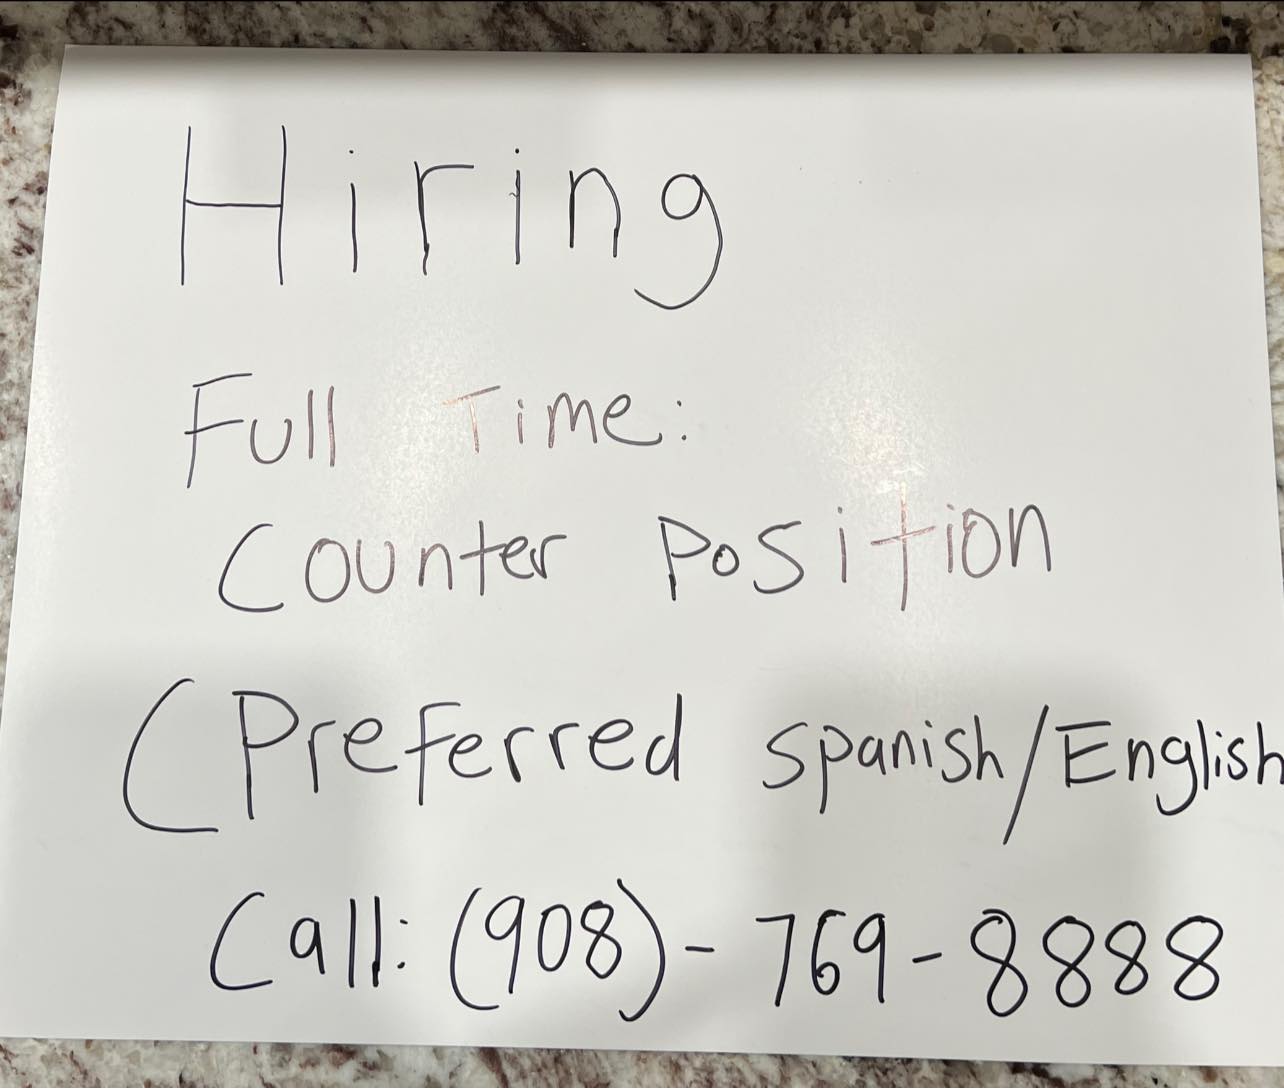 Hiring
Full Time:
Counter Position
(Preferred Spanish/English
Call: (908)-769-8888